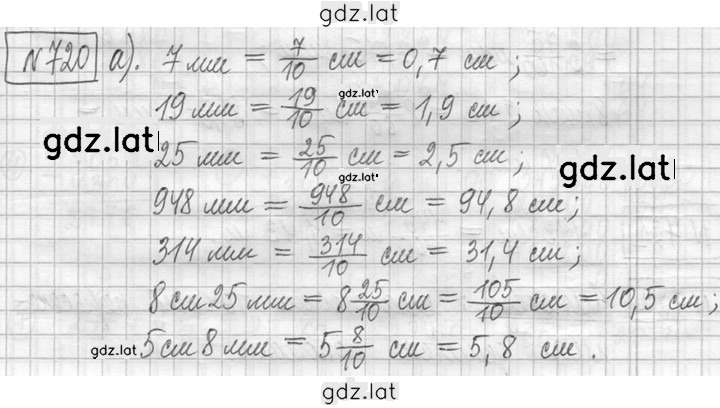 gdz.lat
№720 а). 7 мм = 7/10 см = 0,7 см ;
19 мм = 19/10 см = 1,9 см ;
gdz.lat
gdz.lat
25 мм = 25/10 см = 2,5 см ;
gdz.lat
gdz.lat
948 мм = 948/10 см = 94,8 см ;
314 мм = 314/10 см = 31,4 см ;
8 см 25 мм = 8 25/10 см = 105/10 см = 10,5 см ;
gdz.lat
5 см 8 мм = 5 8/10 см = 5,8 см .
gdz.lat